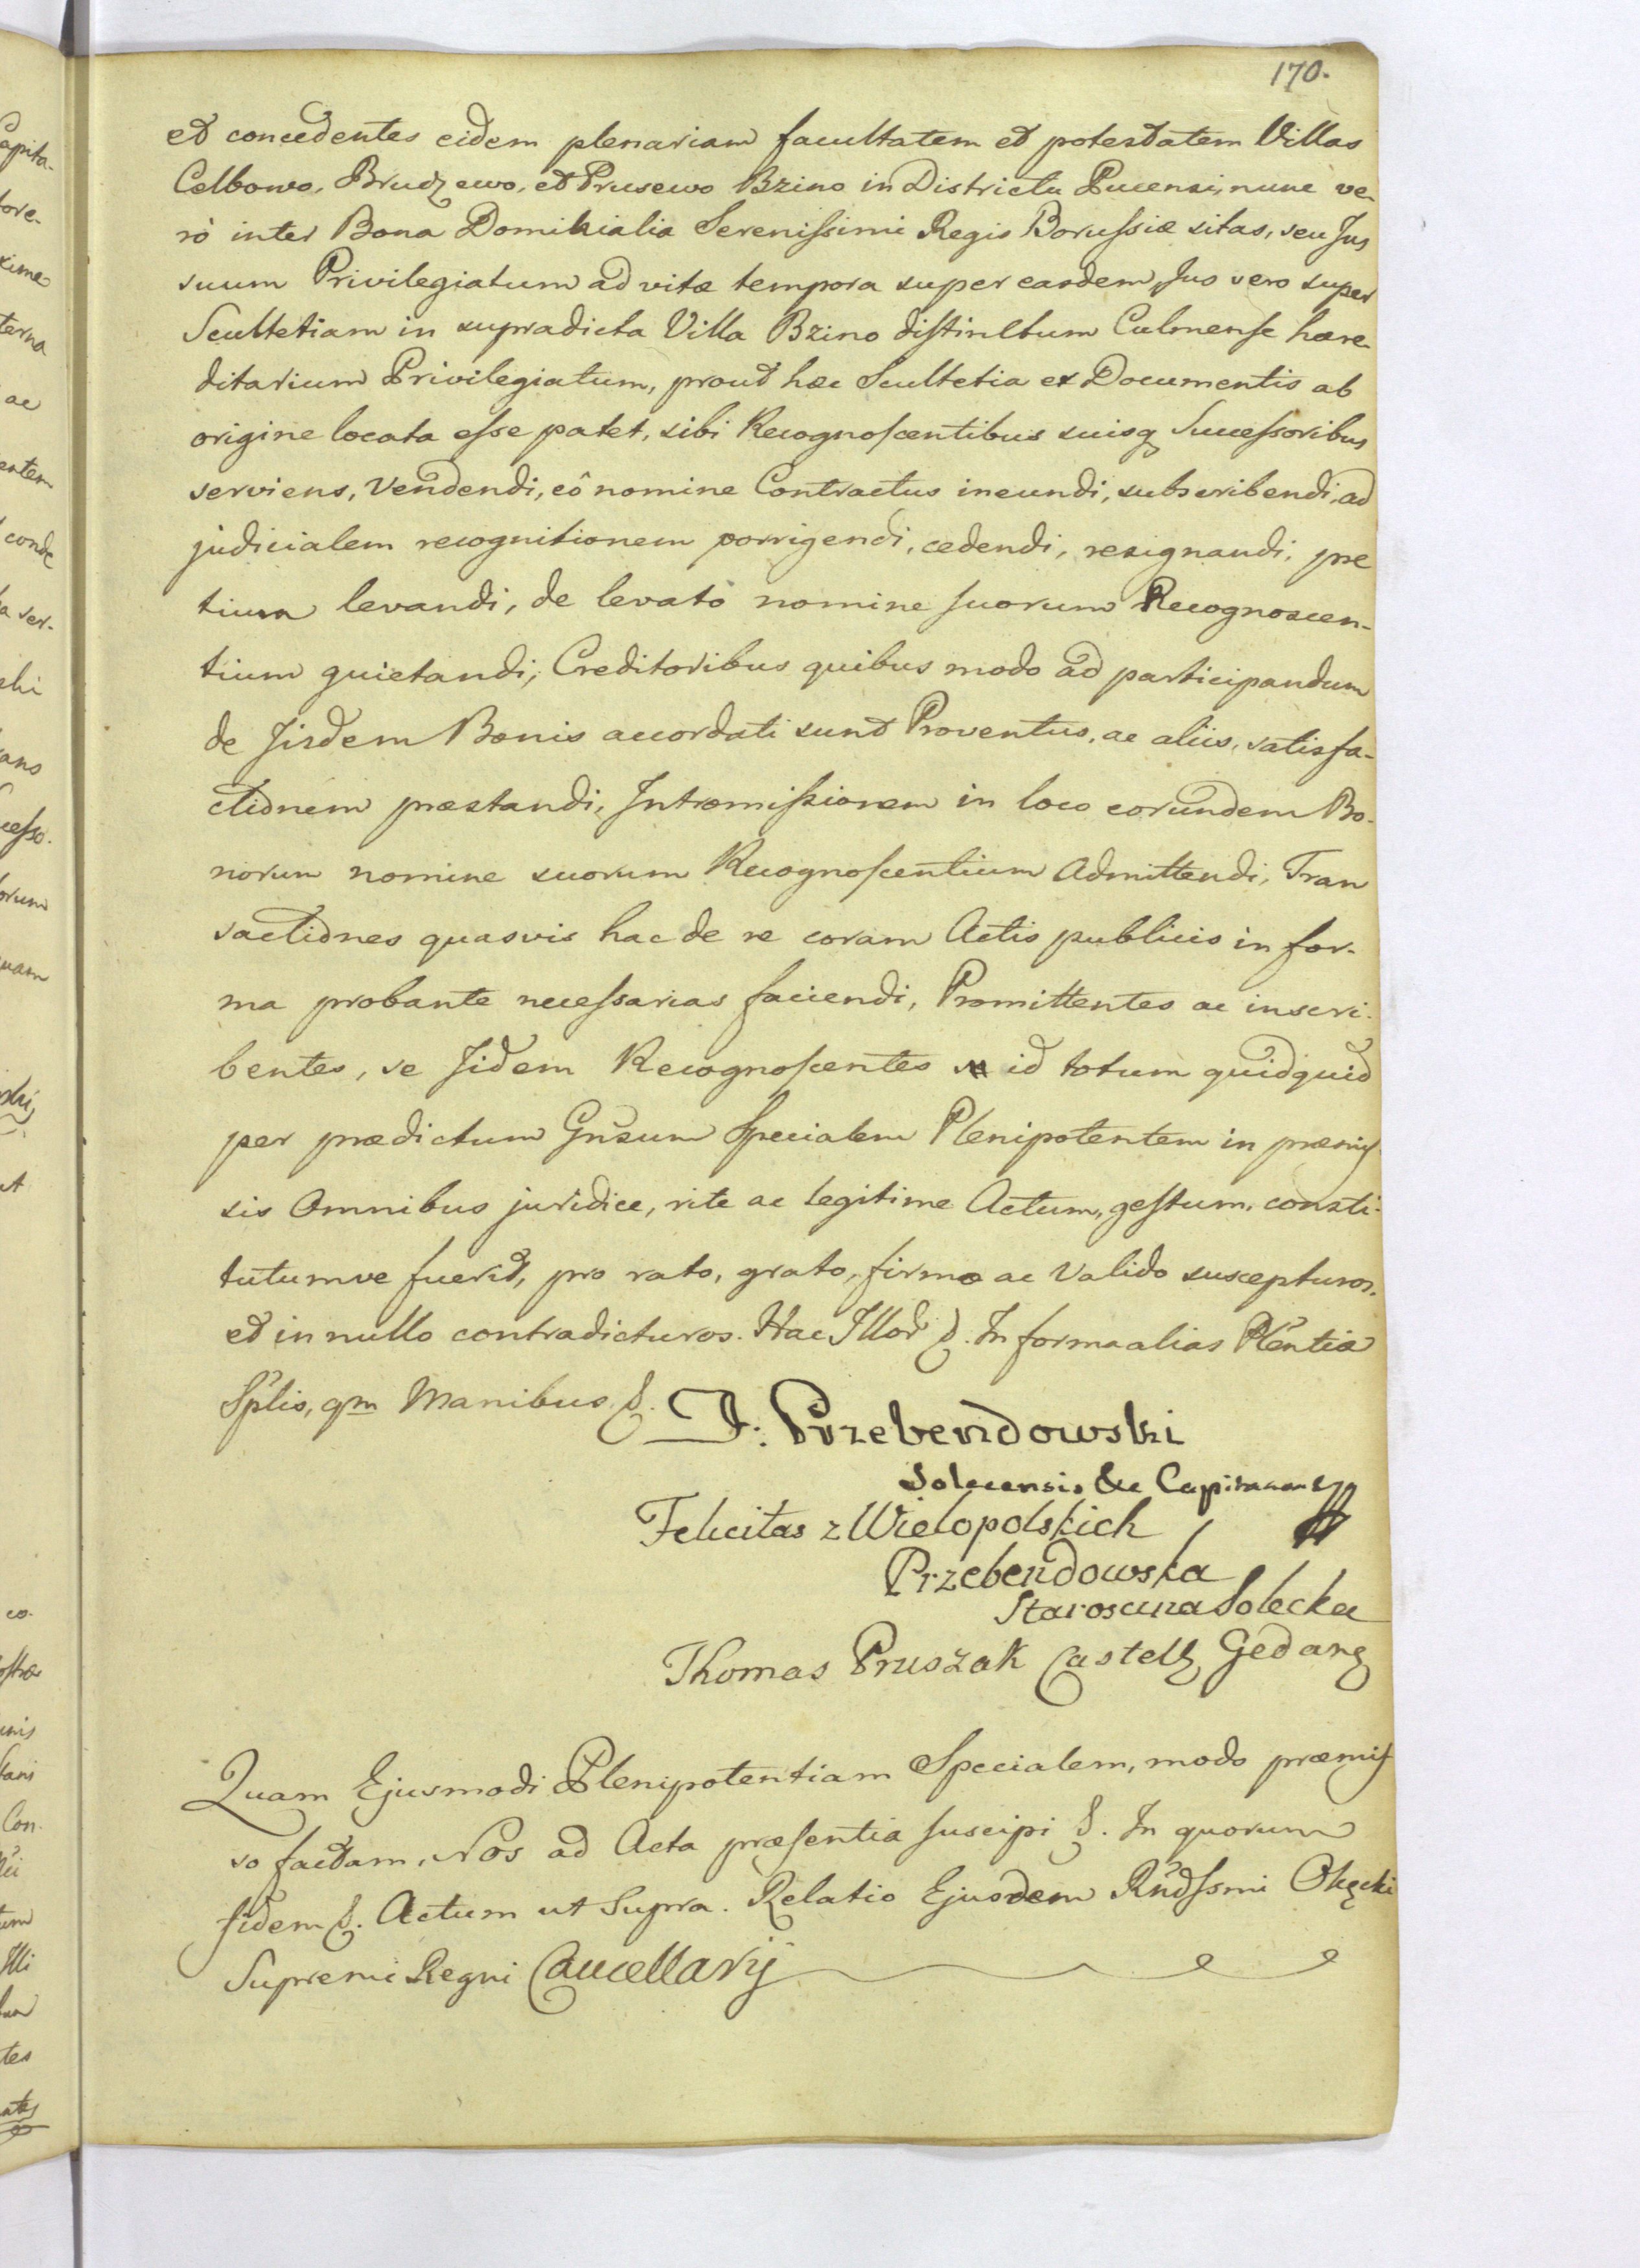 170.
et concedentes eidem plenariam facultatem et potestatem Villas
Celbowo, Brudzewo, et Prusewo Brzino in Districtu Pucensi, nunc ve-
rò inter Bona Domikialia Serenissimi Regis Borussiæ sitas, seu Jus
suum Privilegiatum ad vitæ tempora super easdem, Jus vero super
Scultetiam in supradicta Villa Bzino distinctum Culmense hære-
ditarium Privilegiatum, prout hæc Scultetia ex Documentis ab
origine locata esse patet, sibi Recognoscentibus suisq Successoribus
serviens, Vendendi, eô nomine Contractus ineundi, subscribendi, ad
judicialem recognitionem porrigendi, cedendi, resignandi, pre
tium levandi, de levato nomine suorum Recognoscen-
tium quietandi, Creditoribus quibus modo ad participandum
de Jisdem Bonis accordati sunt Proventus, ac aliis, satisfa-
ctionem præstandi, Intromissionem in loco eorundem Bo-
norum nomine suorum Recognoscentium Admittendi, Tran
sactiones quasvis hac de re coram Actis publicis in for-
ma probante necessarias faciendi, Promittentes ac inscri-
bentes, se Jidem Recognoscentes id totum quidquid
per prædictum Gnsum Specialem Plenipotentem in præmis
sis Omnibus juridice, rite ac legitime Actum, gestum, consti-
tutumve fuerit, pro rato, grato, firmo ac Valido suscepturos,
et in nullo contradicturos. Hac Illor &. In forma alias Plentia
Splis, qm Manibus &. J: Przebendowski
Solecensis &c Capitaneus
Felicitas z Wielopolskich
Przebendowska
Starościna Solecka
Thomas Pruszak Castell Gedan
Quam Ejusmodi Plenipotentiam Specialem, modo præmis
so factam, Nos ad Acta præsentia suscipi &. In quorum
fidem &. Actum ut Supra. Relatio Ejusdem Rndssmi Okęcki
Supremi Regni Cancellarij